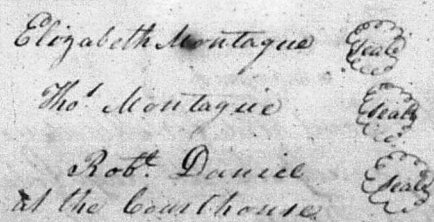 Elizabeth Montague (Seal)
Thos. Montague (Seal)
Robt. Daniel (Seal)
at the Courthouse